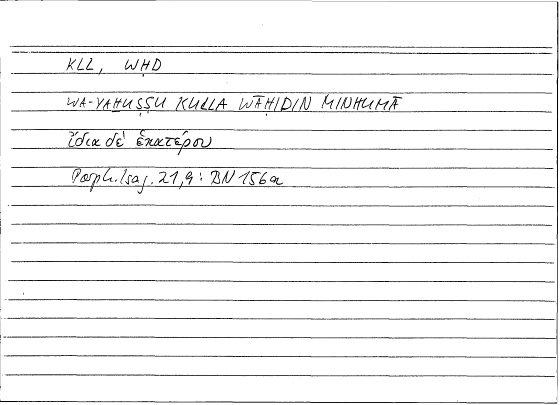 KLL, WḤD
WA-YAḪUṢṢU KULLA WĀḤIDIN MINHUMĀ
ἴδια δὲ ἑκατέρου
Porph. Isag. 21,9: BN 156a